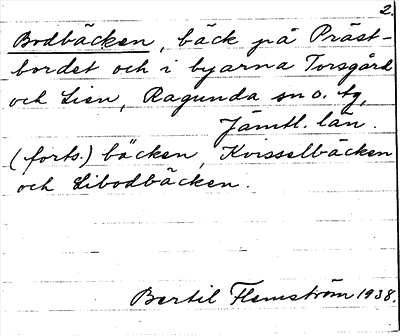 2.
Bodbäcken, bäck på Präst-
bordet och i byarna Torsgård
och Lien, Ragunda sn o. tg,
Jämtl. län.
(forts.) bäcken, Kvisselbäcken
och Libodbäcken.
Bertil Flemström 1938.